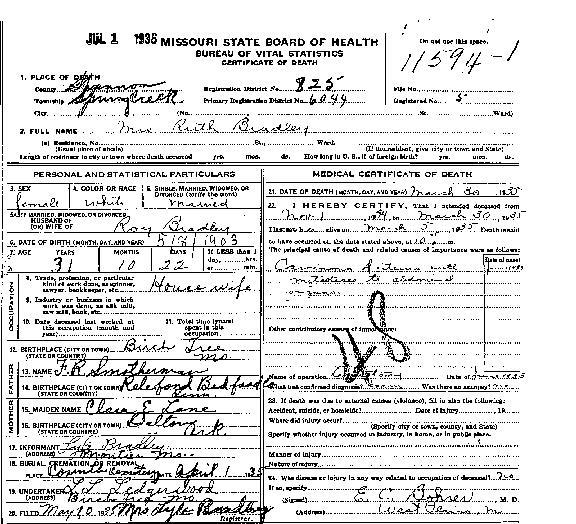 JUL 1 1935 MISSOURI STATE BOARD OF HEALTH
BUREAU OF VITAL STATISTICS
CERTIFICATE OF DEATH
Do not use this space.
11594-1
1. PLACE OF DEATH
County Shannon Registration District No. 825 File No.
Township Spring Creek Primary Registration District No. 6044 Registered No. 5
City (No. St. Ward)
2. FULL NAME Mrs. Ruth Bradley
(a) Residence, No. St., Ward.
(Usual place of abode) (If nonresident, give city or town and State)
Length of residence in city or town where death occurred yrs. mos. ds. How long in U. S., if of foreign birth? yrs. mos. ds.
PERSONAL AND STATISTICAL PARTICULARS
3. SEX female
4. COLOR OR RACE White
5. SINGLE, MARRIED, WIDOWED, OR DIVORCED (write the word) Married
5A. IF MARRIED, WIDOWED, OR DIVORCED
HUSBAND OF
(OR) WIFE OF Roy Bradley
6. DATE OF BIRTH (MONTH, DAY, AND YEAR) 1903
7. AGE YEARS 31 MONTHS 10 DAYS 22 If LESS than 1
day, hrs.
or min.
OCCUPATION
8. Trade, profession, or particular kind of work done, as spinner, sawyer, bookkeeper, etc. House wife
9. Industry or business in which work was done, as silk mill, saw mill, bank, etc.
10. Date deceased last worked at this occupation (month and year)
11. Total time (years) spent in this occupation
12. BIRTHPLACE (CITY OR TOWN) Birch Tree
(STATE OR COUNTRY) Mo
FATHER
13. NAME F. R. Smotherman
14. BIRTHPLACE (CITY OR TOWN) Bedford
(STATE OR COUNTRY) Tenn
MOTHER
15. MAIDEN NAME Clara E Lane
16. BIRTHPLACE (CITY OR TOWN)
(STATE OR COUNTRY) Ark
17. INFORMANT Bradley
(ADDRESS) Montier Mo.
18. BURIAL, CREMATION, OR REMOVAL
PLACE Cemetery DATE April 1 35
19. UNDERTAKER
(ADDRESS) Birch Tree Mo
20. FILED May 10, 1935 Mrs Lyle Bradley
Registrar.
MEDICAL CERTIFICATE OF DEATH
21. DATE OF DEATH (MONTH, DAY, AND YEAR) March 30 1935
22. I HEREBY CERTIFY, That I attended deceased
from Nov 1, 1934, to March 30, 1935
I last saw her alive on March 5, 1935 Death is said
to have occurred on the date stated above, at m.
The principal cause of death and related causes of importance were as follows:
Date of onset
Carcinoma of uterus
Other contributory causes of importance:
Name of operation Date of
What test confirmed diagnosis? Was there an autopsy? no
23. If death was due to external causes (violence), fill in also the following:
Accident, suicide, or homicide? Date of injury , 19
Where did injury occur?
(Specify city or town, county, and State)
Specify whether injury occurred in industry, in home, or in public place.
Manner of injury
Nature of injury
24. Was disease or injury in any way related to occupation of deceased? no
If so, specify
(Signed) E. C. Bohrer M. D.
(Address) West Plains Mo